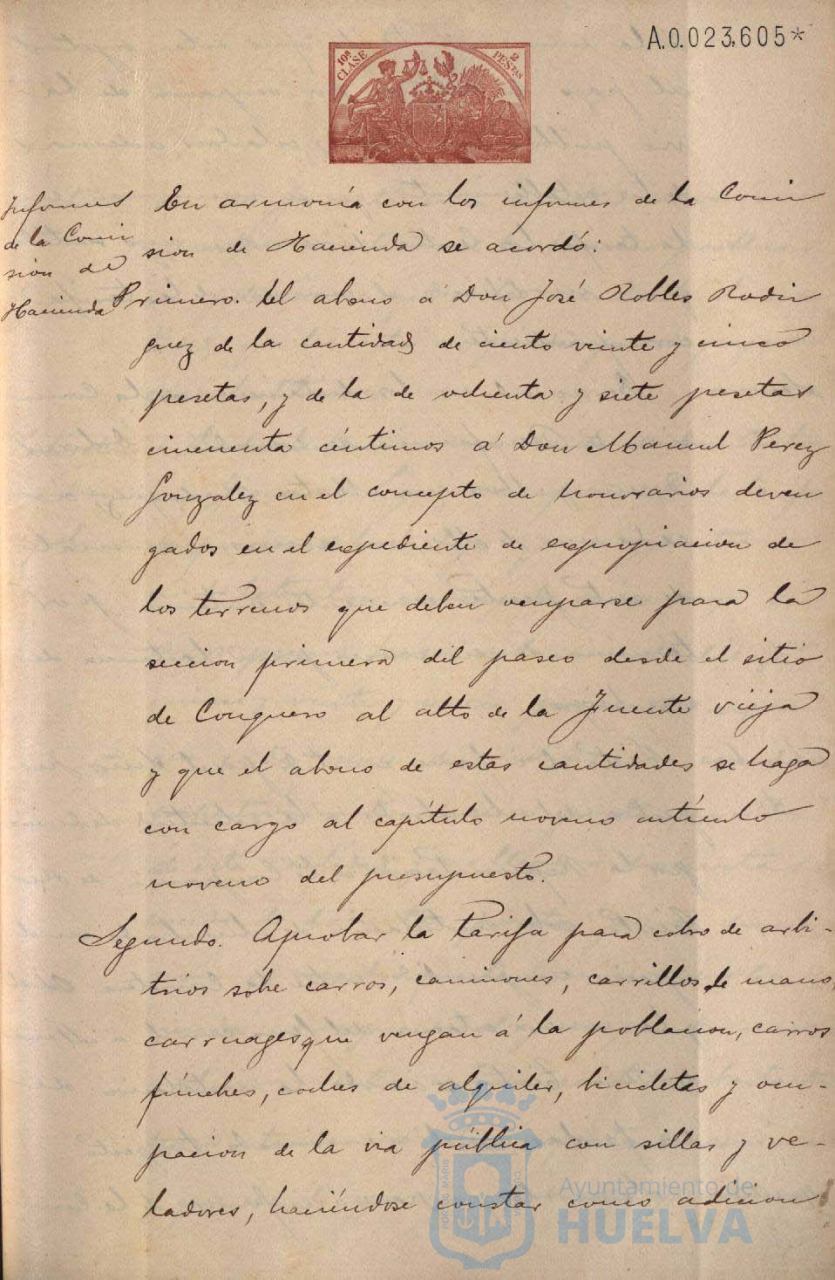 A.0.023,605*
10ª CLASE
2 PESTAS
Informes
de la Comi
sión de
Hacienda
En armonía con los informes de la Comi
sion de Hacienda se acordó:
Primero. El abono á Don José Robles Rodri
guez de la cantidad de ciento veinte y cinco
pesetas, y de la de ochenta y siete pesetas
cincuenta céntimos á Don Manuel Perez
Gonzalez en el concepto de honorarios deven
gados en el expediente de expropiacion de
los terrenos que deben ocuparse para la
seccion primera del paseo desde el sitio
de Conquero al alto de la Fuente vieja
y que el abono de estas cantidades se haga
con cargo al capítulo noveno artículo
noveno del presupuesto.
Segundo. Aprobar la tarifa para cobro de arbi-
trios sobre carros, camiones, carrillos de mano,
carruages que vengan á la poblacion, carros
fúnebres, coches de alquiler, bicicletas y ocu-
pacion de la via pública con sillas y ve-
ladores, haciéndose constar como adicion
Ayuntamiento de
HUELVA